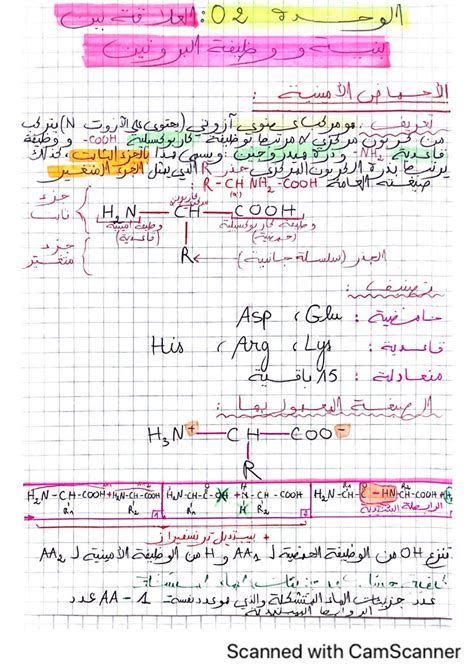 الوحدة 02: العلاقة بين
بنية و وظيفة البروتين
الأحماض الأمينية :
تعريف : هو مركب عضوي آزوتي (يحتوي على الآزوت N) يتركب
من كربون مركزي مرتبط بوظيفة كاربوكسيلية COOH- و وظيفة
قاعدية NH₂- وذرة هيدروجين، ويسمى هذا بالجزء الثابت، كذلك
يرتبط بذرة الكربون المركزي جذر R الذي يمثل الجزء المتغير
صيغته العامة R-CH NH₂-COOH :
(α)
جزء ثابت
كربون مركزي
H₂N — CH — COOH
وظيفة أمينية (قاعدية)
وظيفة كاربوكسيلية (حمضية)
جزء متغير
R ← الجذر (سلسلة جانبية)
تصنيف :
حامضية : Glu ، Asp
قاعدية : Lys ، Arg ، His
متعادلة : 15 باقية
الصيغة المعمول بها :
H₃N⁺ — CH — COO⁻
R
H₂N-CH-COOH + H₂N-CH-COOH
R₁ R₂
1
H₂N-CH-C-OH + N-CH-COOH
R₁ H R₂
2
H₂N-CH-C-HN-CH-COOH +
O R₂
الرابطة الببتيدية
+ بيبتيديل ترنسفيراز
تنزع OH من الوظيفة الحمضية ل AA₁ و H من الوظيفة الأمينية ل AA₂
عدد جزيئات الماء المتشكلة والذي هو عدد نفسه AA - 1 عدد
الروابط الببتيدية
Scanned with CamScanner